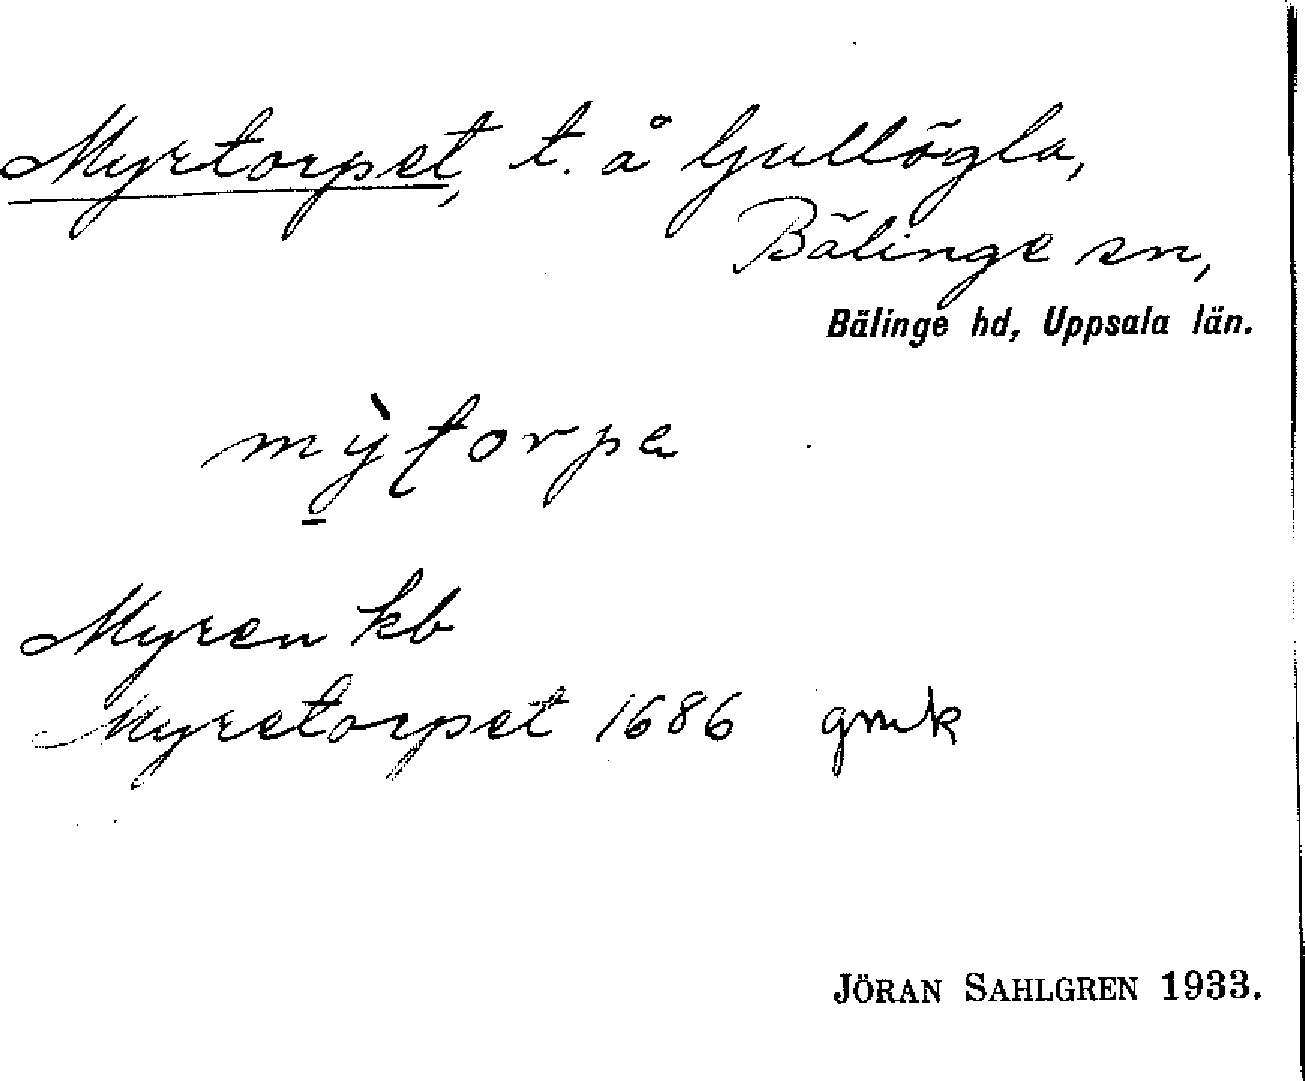 Myrtorpet, t. å Gullögla,
Bälinge sn,
Bälinge hd, Uppsala län.
mỳtorpa
Myren kb
Myretorpet 1686 gmk
JÖRAN SAHLGREN 1933.